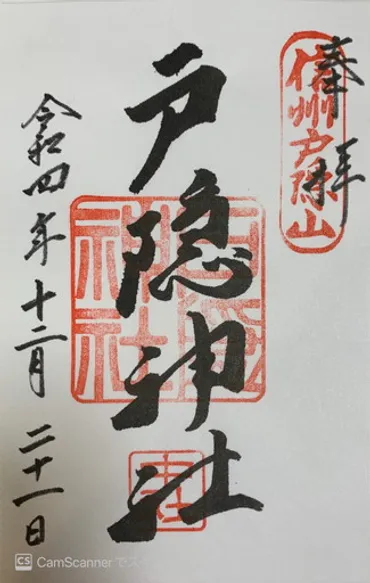 奉拝
信州戸隠山
戸隠神社
戸隠神社
令和四年十二月二十一日
CS CamScannerでス